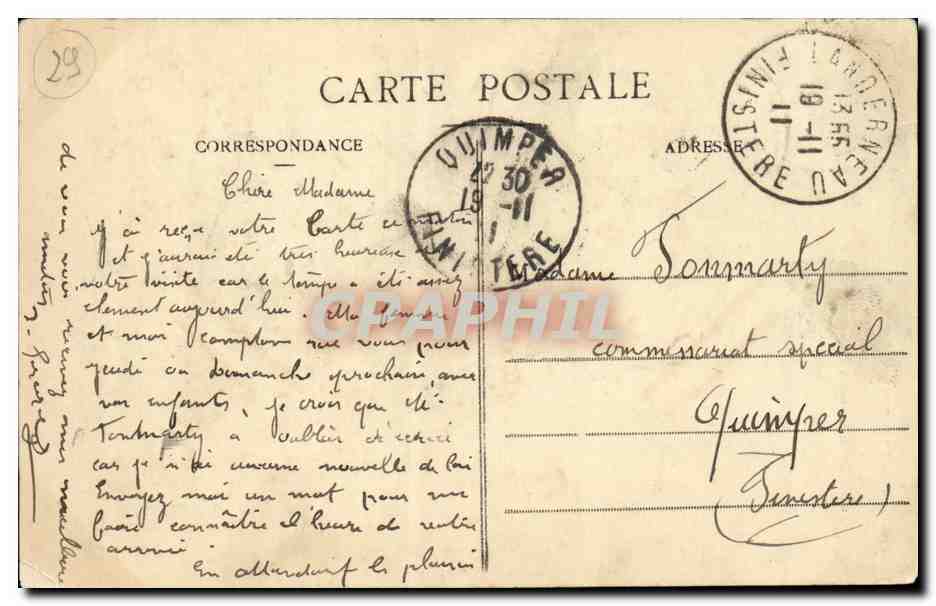 29
CARTE POSTALE
CORRESPONDANCE
ADRESSE
LANDERNEAU FINISTERE
13 55
19-11
11
QUIMPER FINISTERE
12 30
19 -11
Chère Madame
j'ai reçu votre Carte ce matin
et j'aurais été très heureux
votre visite car le temps a été assez
clément aujourd'hui. Ma femme
et moi comptons sur vous pour
jeudi ou Dimanche prochain, avec
vos enfants, je crois que Mr
Tonmarty a oublié d'écrire
car je n'ai aucune nouvelle de lui
Envoyez moi un mot pour me
faire connaître l'heure de votre
arrivée
En attendant le plaisir
de vous voir recevez mes meilleures
amitiés
Madame Tonmarty
commissariat special
Quimper
(Finistère)
CPAPHIL